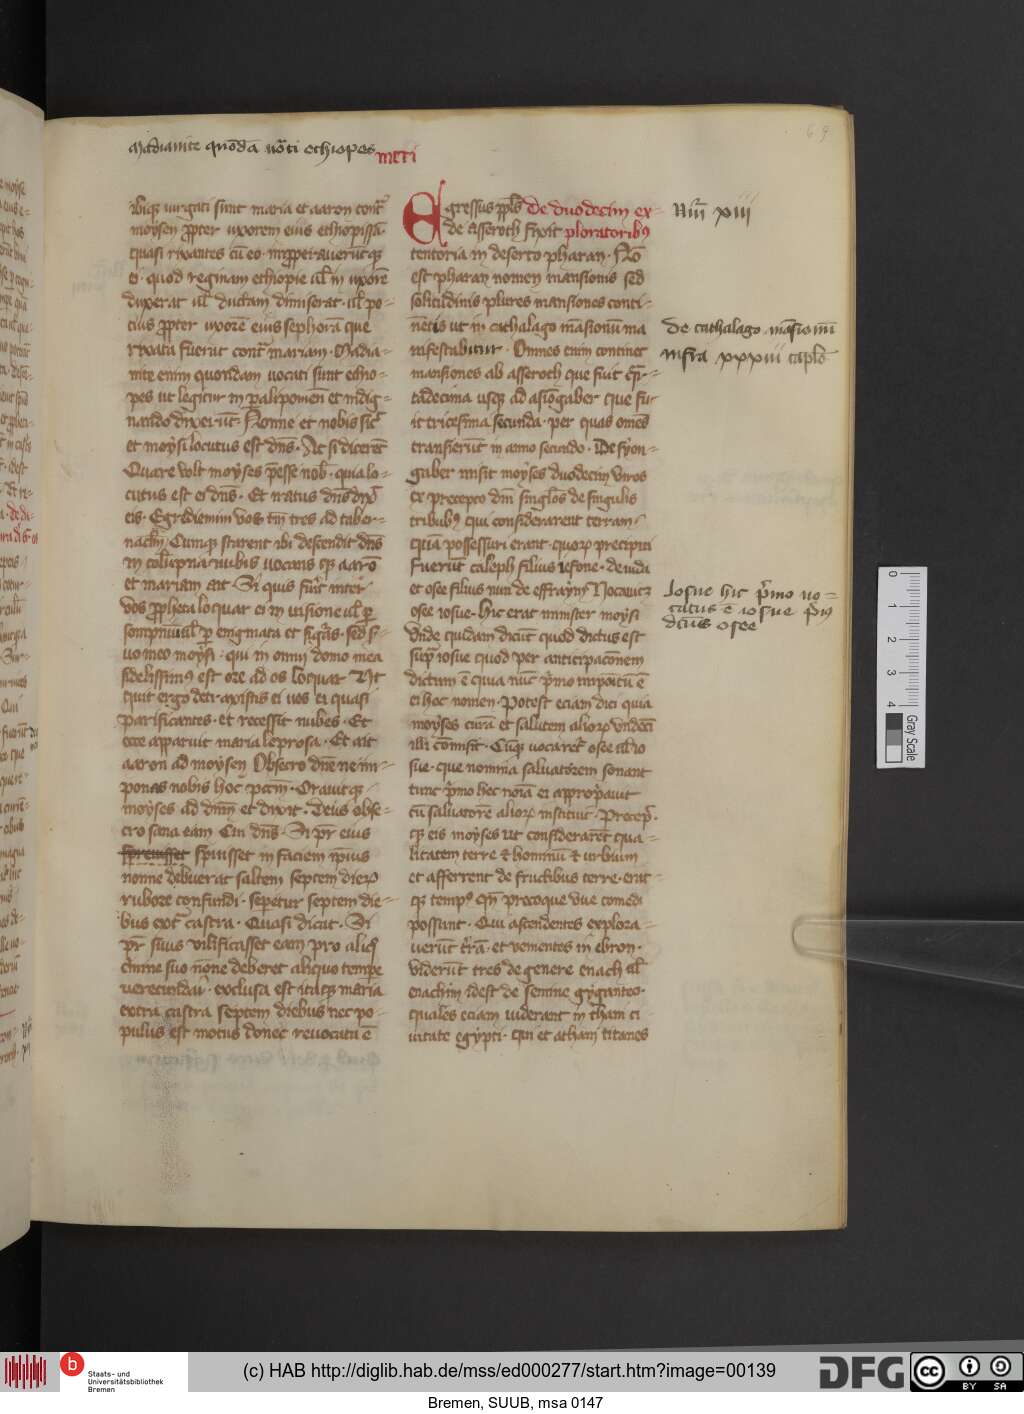 Madianite quōdā uōti ethiopes
meti
69
ibiqʒ iurgati sunt maria et aaron cont̄
moysen ꝓpter uxorem eius ethiopissā
quasi rixantes cū eo · ꝙ
ei · quod reginam ethiopie ul̄ in uxorē
duxerat ul̄ ductam dimiserat · ul̄ po-
cius ꝓpter uxorē eius sephorā que
rixata fuerūt cont̄ mariam · Madia-
nite enim quondam uocati sunt ethio-
pes ut legitur in palipomen̄ et indig-
nando dixerūt · Nonne et nobis sic̄
et moysi locutus est dn̄s · Ac si dicerēt
Quare volt moyses p̄esse nob̄ · quia lo-
cutus est ei dn̄s · Et iratus dn̄s dixᷓ
eis · Egredimini vos tm̄ tres ad taber-
nacl̄m · Cumqʒ starent ibi descendit dn̄s
in col̄upna nubis uocans qʒ aarō
et mariam ait · Si quis fūit inter
vos ꝓpheta loquar ei in uisione ul̄ ꝑ
sompniū ul̄ ꝑ enigmata et figᷓas · sed s̄-
uo meo moysi · qui in omni domo mea
fidelissimꝰ est ore ad os loquar Ut
quit ergo detraxistis ei uos ei quasi
parificantes · et recessit nubes · Et
ecce apparuit maria leprosa · Et ait
aaron ad moysen Obsecro dn̄e ne im-
ponas nobis hoc pᷓctm̄ · Orauitqʒ
moyses ad dn̄m et dixit · Deus obse-
cro sana eam Cui dn̄s · Si pr̄ eius
spreuisset spuisset in faciem ip̄ius
nonne debuerat saltem septem dieꝝ
rubore confundi · sepetur septem die-
bus ext̄ castra · Quasi dicat · Si
pr̄ suus vilificasset eam pro aliqͦ
cͥmine suo nōne deberet aliquo tempe
verecundari · exclusa est itaqʒ maria
extra castra septem diebus nec po-
pulus est motus donec reuocata ē
Egressus ppl̄s De duodecim ex-
de asseroth fixit ploratoribꝰ
tentoria in deserto pharan · Nō
est pharan nomen mansionis sed
solitudinis plures mansiones conti-
nētis ut in cathalago māsionū ma
nifestabitur · Omnes enim continet
mansiones ab asseroth que fuit qᷓr-
tadecima usqʒ ad asiōgaber que fu-
it tricesima secunda · per quas omēs
transierūt in anno secundo · De syon-
gaber misit moyses duodecim viros
ex precepto dn̄i singl̄os de singulis
tribubꝰ qui considerarent terram
quā possessuri erant · quoꝝ precipui
fuerūt caleph filius iefone · de iuda
et osee filius nun de effraym Uocauitqʒ
osee iosue · hic erat minister moysi
Vnde quidam dicūt quod dictus est
sup̄ iosue quod per anticipacōnem
dictum ē quia nūc pͥmo impōitū ē
ei hoc nomen · Potest eciam dici quia
moyses curā et salutem alioꝝ vndeci
illi cōmisit · Cūqʒ uocaret osee ul̄ io
sue · que nomina saluatorem sonant
tunc pͥmo hec noīa ei appropᷓauit
cū saluatorē alioꝝ instituit · Precepͭ
qʒ eis moyses ut considerarēt qua-
litatem terre ⁊ hominū ⁊ urbium
et afferrent de fructibus terre · erat-
qʒ tempꝰ qn̄ precoque vue comedi
possunt · Qui ascendentes explora-
uerūt t̄rā · et venientes in ebron ·
viderūt tres de genere enach ul̄
enachim idest de semine gygantes ·
quales eciam viderant in tham ci-
uitate egypti · qui et atham titanes
Nūī xiii
De cathalago māsionū
infra xxxiii capl̄o
Iosue hic pͥmo uo-
catus ē iosue pͥuꝰ
dictus osee
0
1
2
3
4
Gray Scale
b
Staats- und
Universitätsbibliothek
Bremen
(c) HAB http://diglib.hab.de/mss/ed000277/start.htm?image=00139
DFG
cc BY SA
Bremen, SUUB, msa 0147